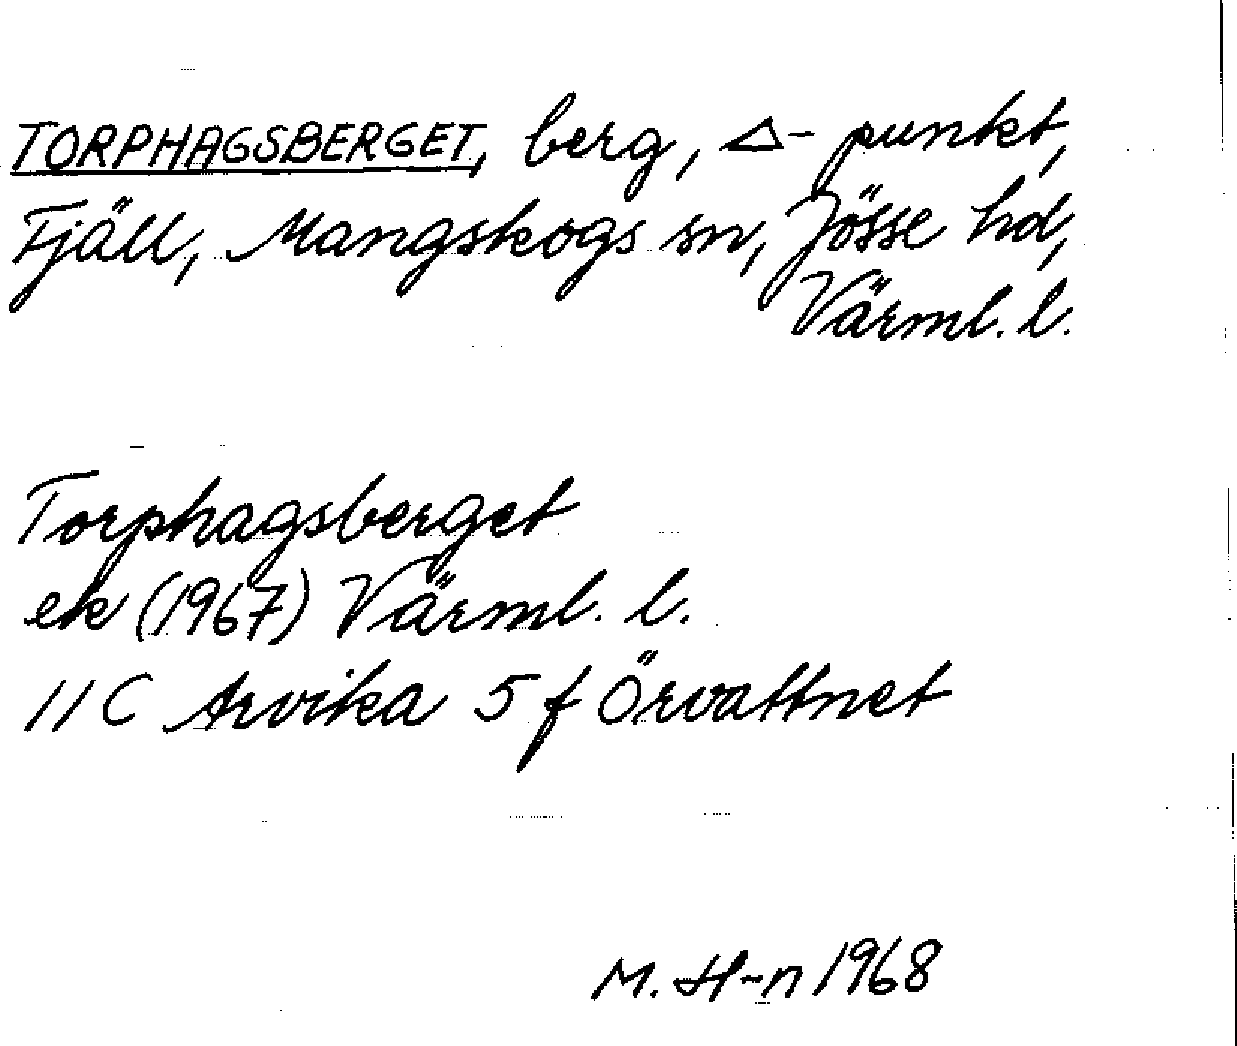 TORPHAGSBERGET, berg, △-punkt,
Fjäll, Mangskogs sn, Jösse hd,
Värml. l.
Torphagsberget
ek (1967) Värml. l.
11 C Arvika 5 f Örvattnet
M. H-n 1968